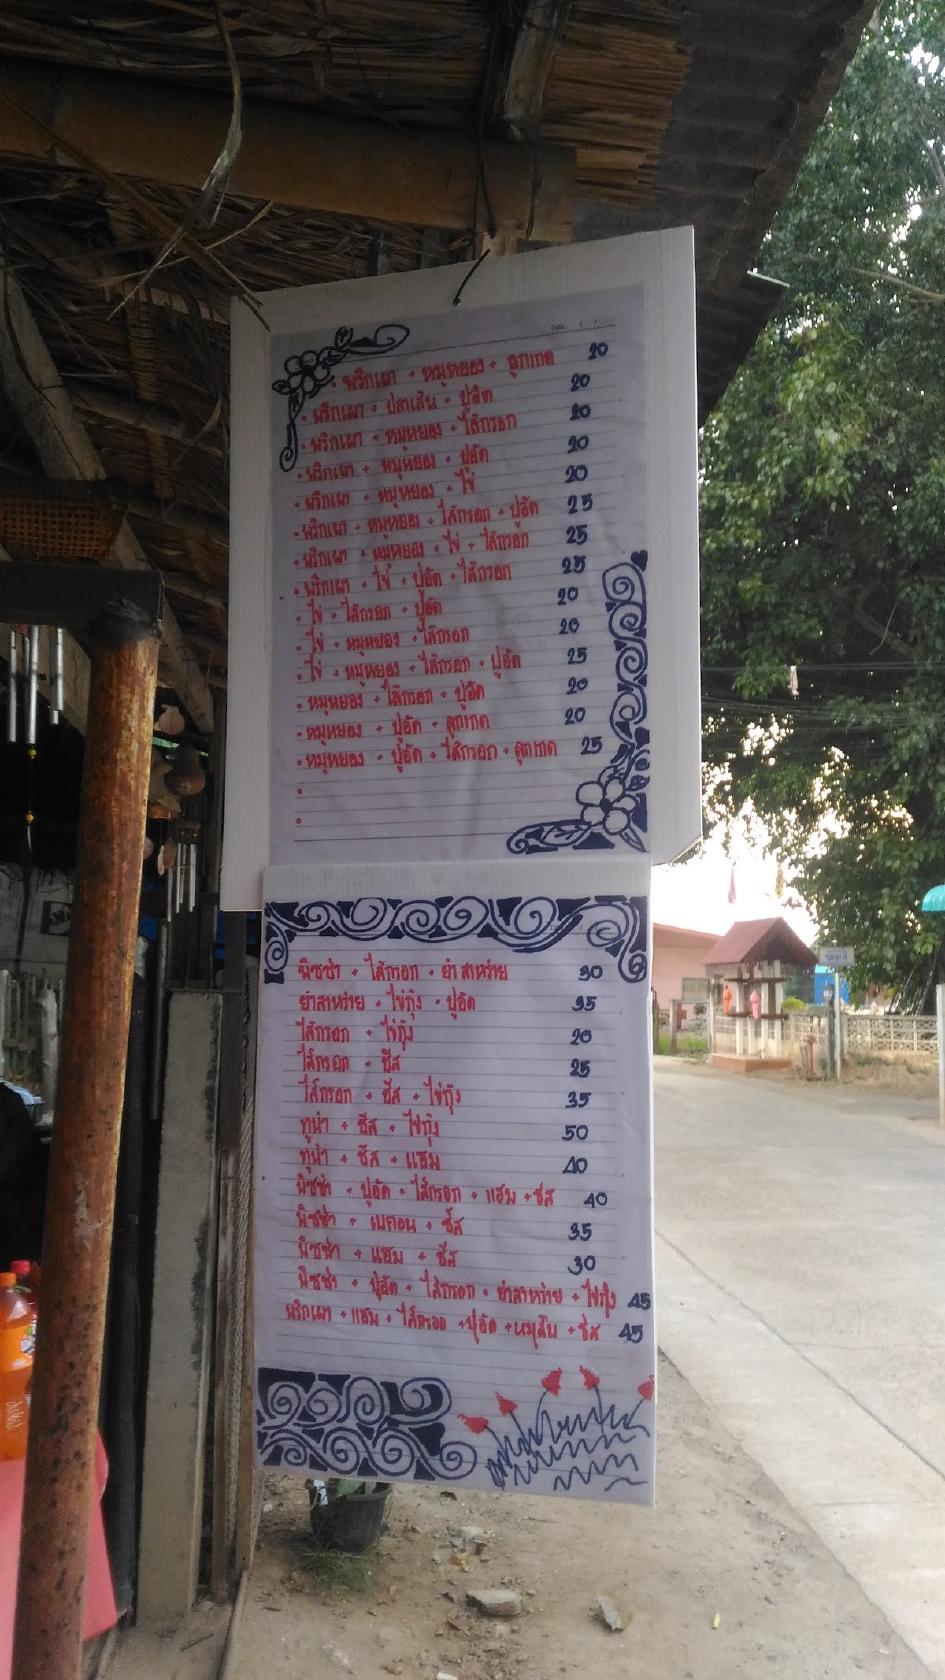 Date / /
• พริกเผา + หมูหยอง + ลูกเกด 20
• พริกเผา + ปลาเส้น + ปูอัด 20
• พริกเผา + หมูหยอง + ไส้กรอก 20
• พริกเผา + หมูหยอง + ปูอัด 20
• พริกเผา + หมูหยอง + ไข่ 20
• พริกเผา + หมูหยอง + ไส้กรอก + ปูอัด 25
• พริกเผา + หมูหยอง + ไข่ + ไส้กรอก 25
• พริกเผา + ไข่ + ปูอัด + ไส้กรอก 25
• ไข่ + ไส้กรอก + ปูอัด 20
• ไข่ + หมูหยอง + ไส้กรอก 20
• ไข่ + หมูหยอง + ไส้กรอก + ปูอัด 25
• หมูหยอง + ไส้กรอก + ปูอัด 20
• หมูหยอง + ปูอัด + ลูกเกด 20
• หมูหยอง + ปูอัด + ไส้กรอก + ลูกเกด 25
พิซซ่า + ไส้กรอก + ยำสาหร่าย 30
ยำสาหร่าย + ไข่กุ้ง + ปูอัด 35
ไส้กรอก + ไข่กุ้ง 20
ไส้กรอก + ชีส 25
ไส้กรอก + ชีส + ไข่กุ้ง 35
ทูน่า + ชีส + ไข่กุ้ง 50
ทูน่า + ชีส + แฮม 40
พิซซ่า + ปูอัด + ไส้กรอก + แฮม + ชีส 40
พิซซ่า + เบคอน + ชีส 35
พิซซ่า + แฮม + ชีส 30
พิซซ่า + ปูอัด + ไส้กรอก + ยำสาหร่าย + ไข่กุ้ง 45
พริกเผา + แฮม + ไส้กรอก + ปูอัด + หมูสับ + ชีส 45